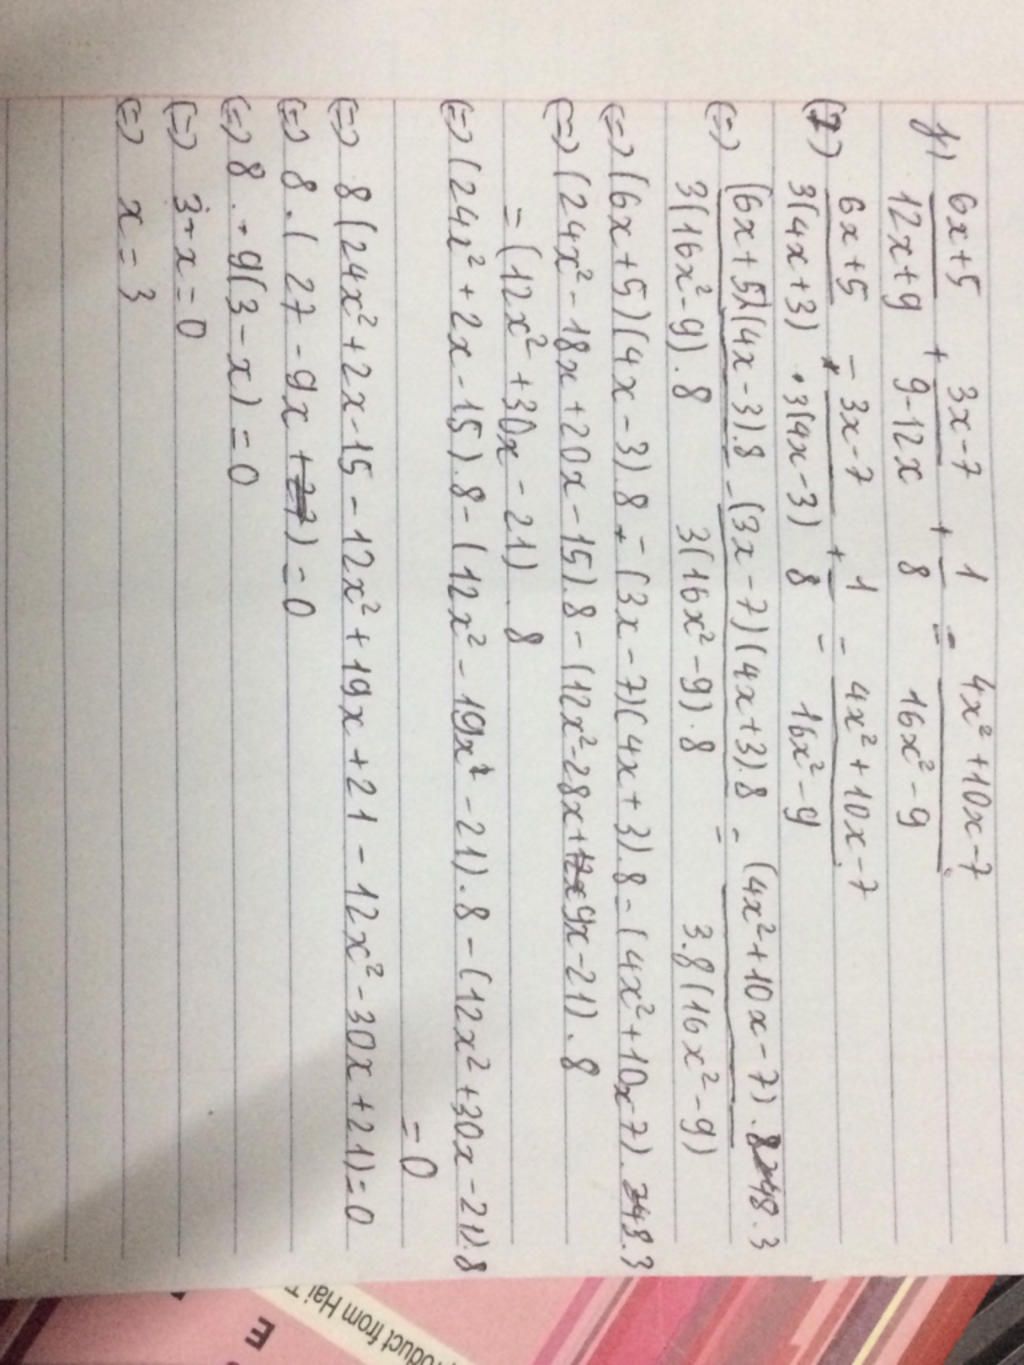 f) \frac{6x+5}{12x+9} + \frac{3x-7}{9-12x} + \frac{1}{8} = \frac{4x^2+10x-7}{16x^2-9}
\frac{6x+5}{3(4x+3)} - \frac{3x-7}{3(4x-3)} + \frac{1}{8} = \frac{4x^2+10x-7}{16x^2-9}
(=) \frac{(6x+5)(4x-3).8}{3(16x^2-9).8} - \frac{(3x-7)(4x+3).8}{3(16x^2-9).8} = \frac{(4x^2+10x-7).8.3}{3.8(16x^2-9)}
(=) (6x+5)(4x-3).8 - (3x-7)(4x+3).8 = (4x^2+10x-7).8.3
(=) (24x^2-18x+20x-15).8 - (12x^2-28x+9x-21).8
= (12x^2+30x-21).8
(=) (24x^2+2x-15).8 - (12x^2-19x-21).8 - (12x^2+30x-21).8
= 0
(=) 8(24x^2+2x-15-12x^2+19x+21-12x^2-30x+21)=0
(=) 8.(27-9x)=0
(=) 8.9(3-x)=0
(=) 3-x=0
(=) x=3
Product from Hai T
E